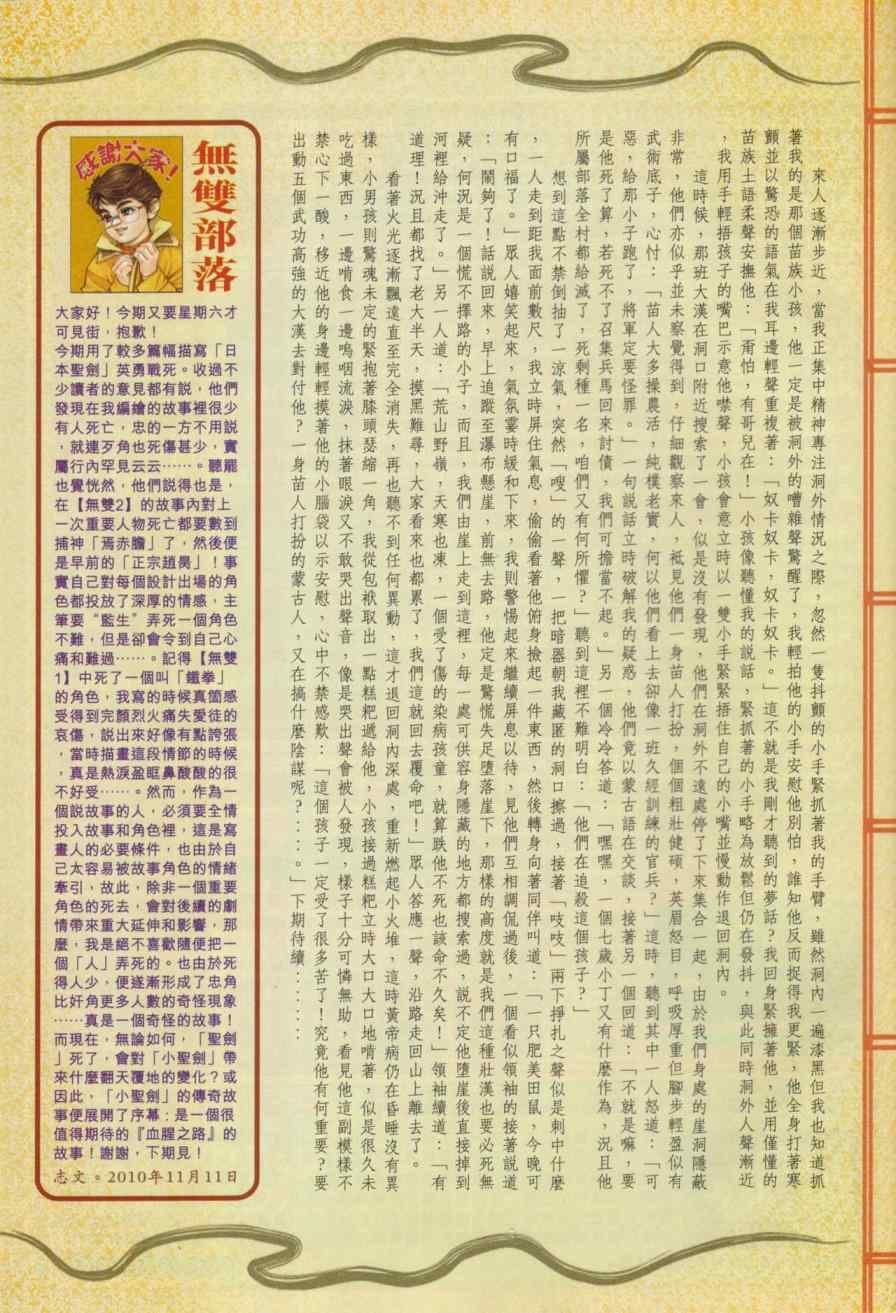 來人逐漸步近，當我正集中精神專注洞外情況之際，忽然一隻抖顫的小手緊抓著我的手臂，雖然洞內一遍漆黑但我也知道抓
著我的是那個苗族小孩，他一定是被洞外的嘈雜聲驚醒了，我輕拍他的小手安慰他別怕，誰知他反而捉得我更緊，他全身打著寒
顫並以驚恐的語氣在我耳邊輕聲重複著：「奴卡奴卡，奴卡奴卡。」這不就是我剛才聽到的夢話？我回身緊擁著他，並用僅懂的
苗族土語柔聲安撫他：「甭怕，有哥兒在！」小孩像聽懂我的說話，緊抓著的小手略為放鬆但仍在發抖，與此同時洞外人聲漸近
，我用手輕捂孩子的嘴巴示意他噤聲，小孩會意立時以一雙小手緊緊捂住自己的小嘴並慢動作退回洞內。
這時候，那班大漢在洞口附近搜索了一會，似是沒有發現，他們在洞外不遠處停了下來集合一起，由於我們身處的崖洞隱蔽
非常，他們亦似乎並未察覺得到，仔細觀察來人，祗見他們一身苗人打扮，個個粗壯健碩，英眉怒目，呼吸厚重但腳步輕盈似有
武術底子，心忖：「苗人大多操農活，純樸老實，何以他們看上去卻像一班久經訓練的官兵？」這時，聽到其中一人怒道：「可
惡，給那小子跑了，將軍定要怪罪。」一句說話立時破解我的疑惑，他們竟以蒙古語在交談，接著另一個回道：「不就是嘛，要
是他死了算，若死不了召集兵馬回來討債，我們可擔當不起。」另一個冷冷答道：「嘿嘿，一個七歲小丁又有什麼作為，況且他
所屬部落全村都給滅了，死剩種一名，咱們又有何所懼？」聽到這裡不難明白：「他們在追殺這個孩子？」
想到這點不禁倒抽了一涼氣，突然「嗖」的一聲，一把暗器朝我藏匿的洞口擦過，接著「吱吱」兩下掙扎之聲似是刺中什麼
，一人走到距我面前數尺，我立時屏住氣息，偷偷看著他俯身撿起一件東西，然後轉身向著同伴叫道：「一只肥美田鼠，今晚可
有口福了。」眾人嬉笑起來，氣氛霎時緩和下來，我則警惕起來繼續屏息以待，見他們互相調侃過後，一個看似領袖的接著說道
：「鬧夠了！話說回來，早上追蹤至瀑布懸崖，前無去路，他定是驚慌失足墮落崖下，那樣的高度就是我們這種壯漢也要必死無
疑，何況是一個慌不擇路的小子，而且，我們由崖上走到這裡，每一處可供容身隱藏的地方都搜索過，說不定他墮崖後直接掉到
河裡給沖走了。」另一人道：「荒山野嶺，天寒也凍，一個受了傷的染病孩童，就算跌他不死也該命不久矣！」領袖續道：「有
道理！況且都找了老大半天，摸黑難尋，大家看來也都累了，我們這就回去覆命吧！」眾人答應一聲，沿路走回山上離去了。
看著火光逐漸飄遠直至完全消失，再也聽不到任何異動，這才退回洞內深處，重新燃起小火堆，這時黃帝病仍在昏睡沒有異
樣，小男孩則驚魂未定的緊抱著膝頭瑟縮一角，我從包袱取出一點糕粑遞給他，小孩接過糕粑立時大口大口地啃著，似是很久未
吃過東西，一邊啃食一邊嗚咽流淚，抹著眼淚又不敢哭出聲音，像是哭出聲會被人發現，樣子十分可憐無助，看見他這副模樣不
禁心下一酸，移近他的身邊輕輕摸著他的小腦袋以示安慰，心中不禁感歎：「這個孩子一定受了很多苦了！究竟他有何重要？要
出動五個武功高強的大漢去對付他？一身苗人打扮的蒙古人，又在搞什麼陰謀呢？：：。」下期待續：：：：
無雙部落
感謝大家！
大家好！今期又要星期六才
可見街，抱歉！
今期用了較多篇幅描寫「日
本聖劍」英勇戰死。收過不
少讀者的意見都有說，他們
發現在我編繪的故事裡很少
有人死亡，忠的一方不用說
，就連歹角也死傷甚少，實
屬行內罕見云云⋯⋯。聽罷
也覺恍然，他們說得也是，
在【無雙2】的故事內對上
一次重要人物死亡都要數到
捕神「焉赤膽」了，然後便
是早前的「正宗趙禺」！事
實自己對每個設計出場的角
色都投放了深厚的情感，主
筆要“監生”弄死一個角色
不難，但是卻會令到自己心
痛和難過⋯⋯。記得【無雙
1】中死了一個叫「鐵拳」
的角色，我寫的時候真箇感
受得到完顏烈火痛失愛徒的
哀傷，說出來好像有點誇張
，當時描畫這段情節的時候
，真是熱淚盈眶鼻酸酸的很
不好受⋯⋯。然而，作為一
個說故事的人，必須要全情
投入故事和角色裡，這是寫
畫人的必要條件，也由於自
己太容易被故事角色的情緒
牽引，故此，除非一個重要
角色的死去，會對後續的劇
情帶來重大延伸和影響，那
麼，我是絕不喜歡隨便把一
個「人」弄死的。也由於死
得人少，便逐漸形成了忠角
比奸角更多人數的奇怪現象
⋯⋯真是一個奇怪的故事！
而現在，無論如何，「聖劍
」死了，會對「小聖劍」帶
來什麼翻天覆地的變化？或
因此，「小聖劍」的傳奇故
事便展開了序幕：是一個很
值得期待的『血腥之路』的
故事！謝謝，下期見！
志文。2010年11月11日